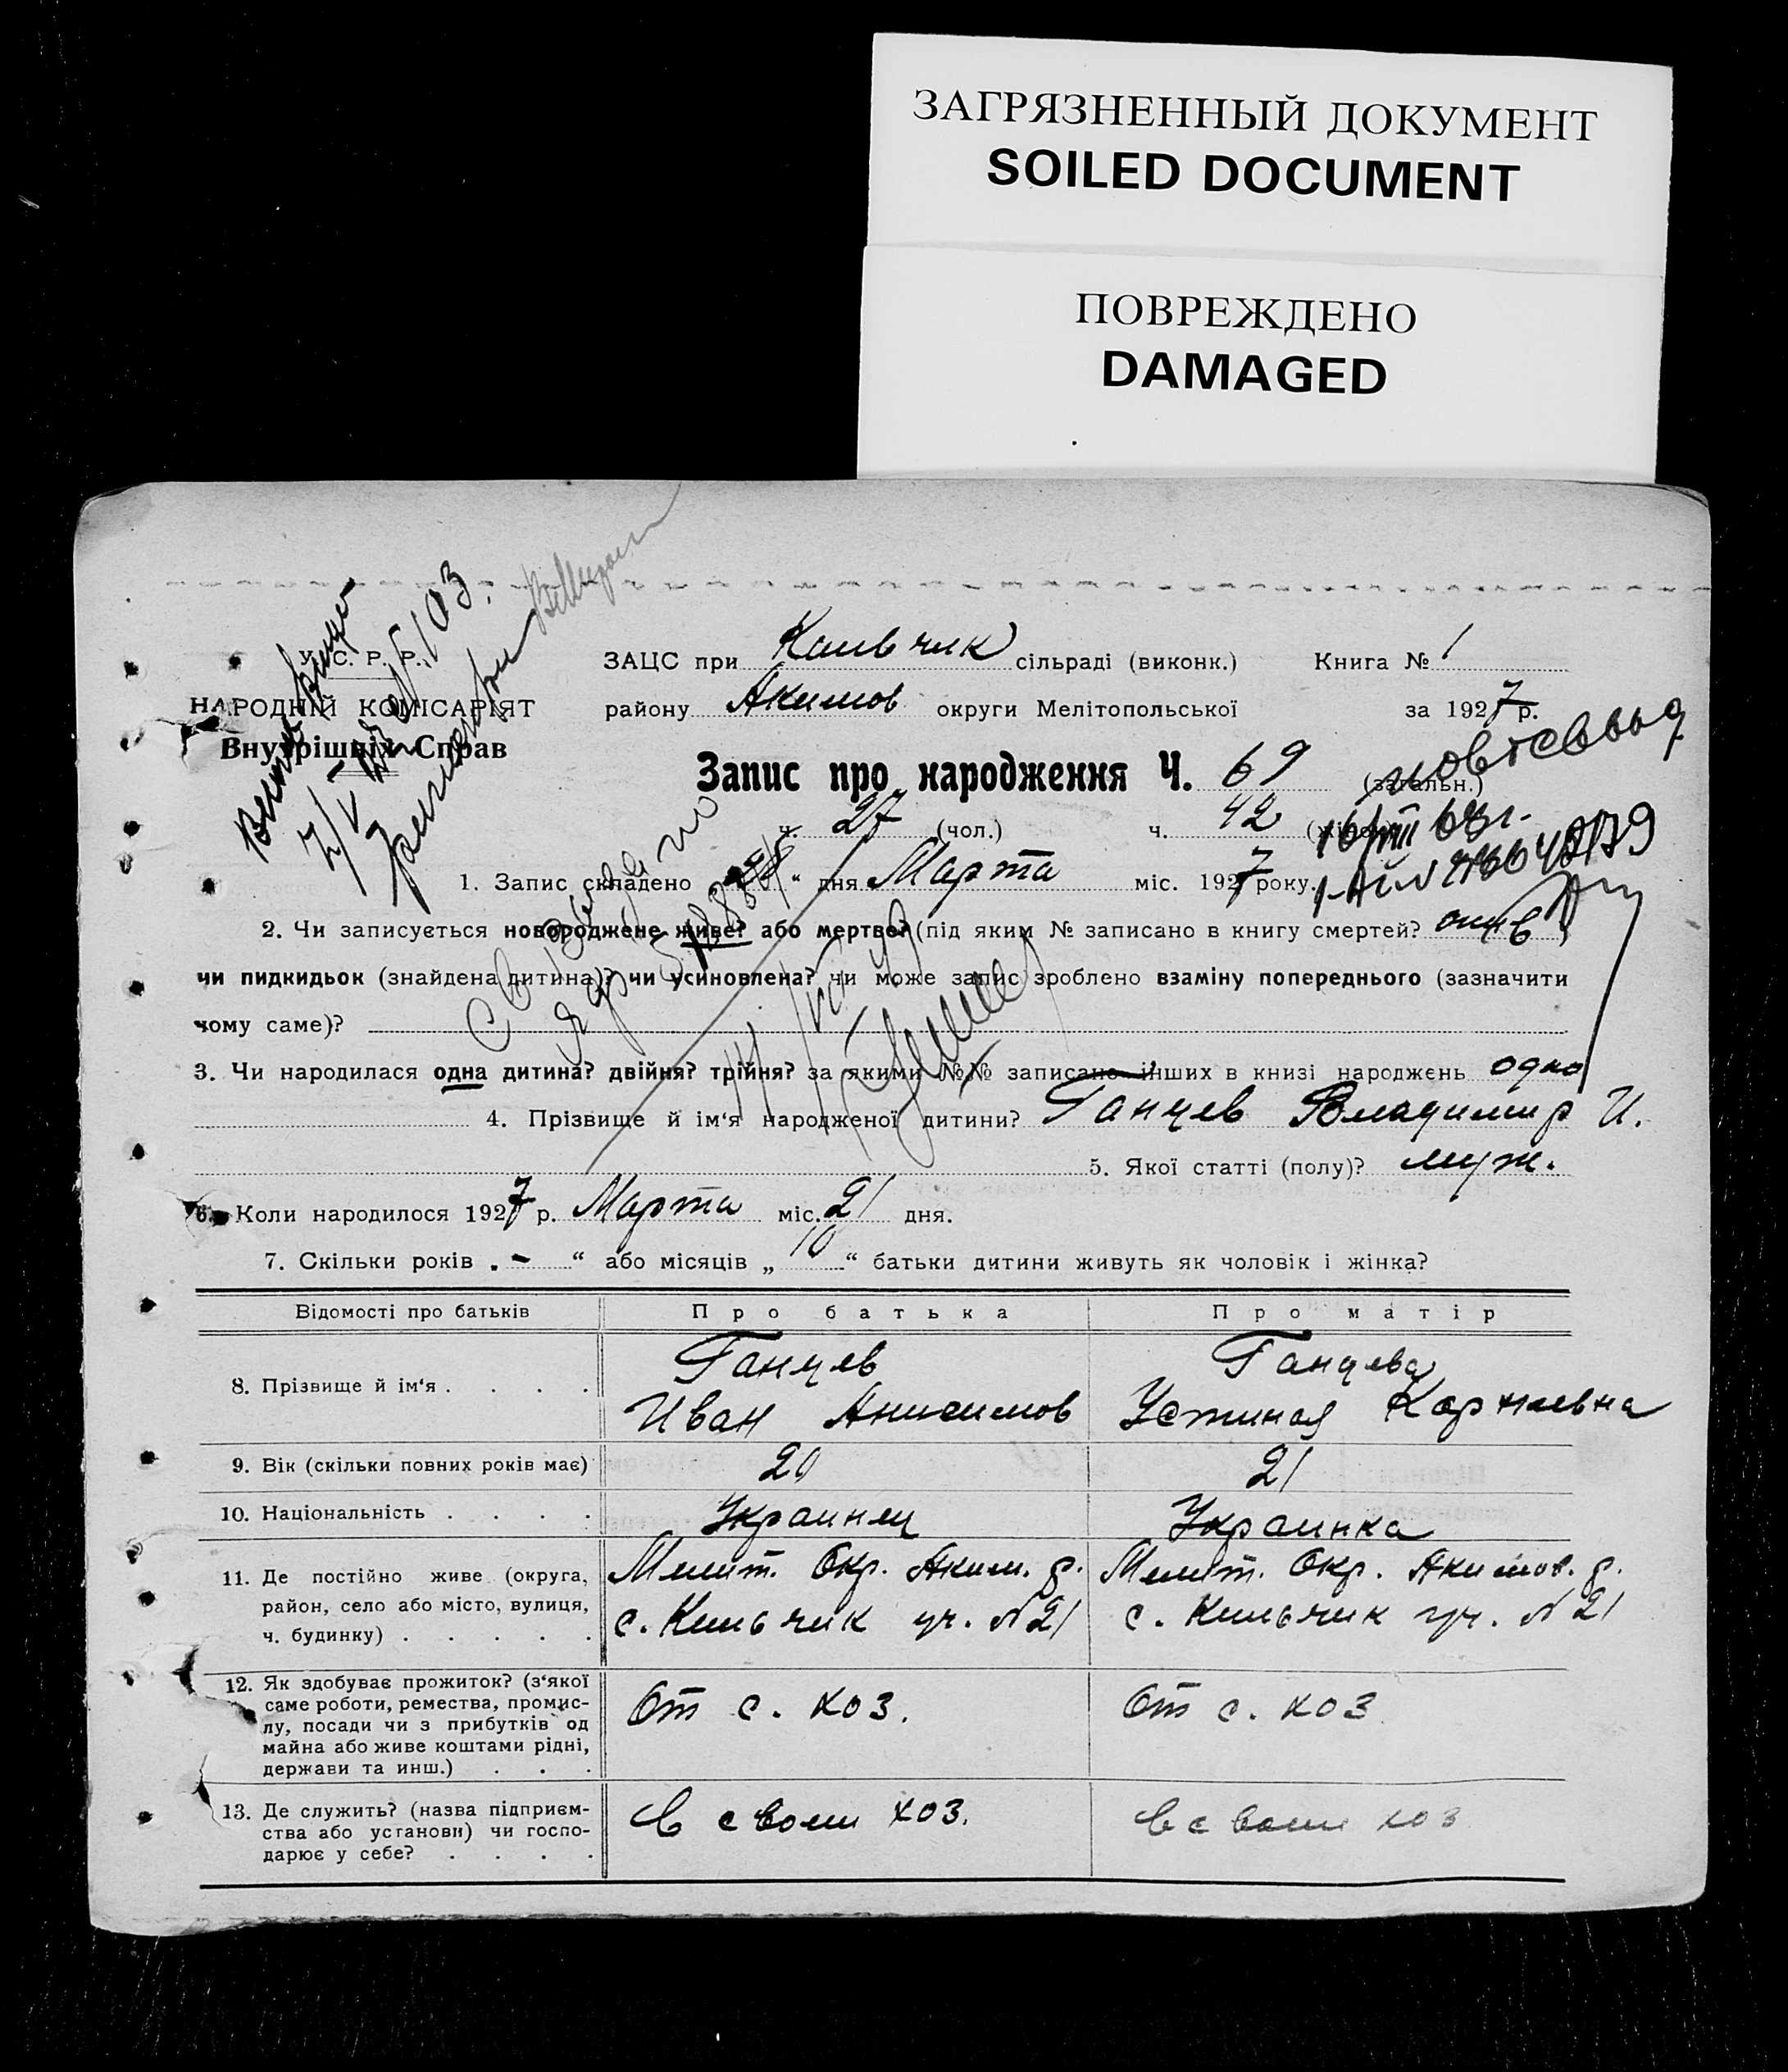 ЗАГРЯЗНЕННЫЙ ДОКУМЕНТ
SOILED DOCUMENT
ПОВРЕЖДЕНО
DAMAGED
У. С. Р. Р.
НАРОДНІЙ КОМІСАРІЯТ
Внутрішніх Справ
ЗАЦС при сільраді (виконк.) Книга № 1
району Акимов округи Мелітопольської за 1927 р.
Запис про народження Ч. 69 (загальн.)
ч. 27 (чол.) ч. 42
1. Запис складено „ “ дня Марта міс. 1927 року.
2. Чи записується новороджене живе? або мертве? (під яким № записано в книгу смертей?
чи пидкидьок (знайдена дитина)? чи усиновлена? чи може запис зроблено взаміну попереднього (зазначити
чому саме)?
3. Чи народилася одна дитина? двійня? трійня? за якими №№ записано інших в книзі народжень одна
4. Прізвище й ім‘я народженої дитини? Ганцев Владимир И.
5. Якої статті (полу)? муж.
6. Коли народилося 1927 р. Марта міс. 21 дня.
7. Скільки років „ - “ або місяців „ 10 “ батьки дитини живуть як чоловік і жінка?
Відомості про батьків Про батька Про матір
8. Прізвище й ім‘я . . . . Ганцев Ганцева
Иван Анисимов Устиная Карнаевна
9. Вік (скільки повних років має) 20 21
10. Національність . . . . Украинец Украинка
11. Де постійно живе (округа, Мелит. Окр. Аким. р. Мелит. Окр. Акимов. р.
район, село або місто, вулиця, с. Кильчик уч. №21 с. Кильчик уч. №21
ч. будинку) . . . . .
12. Як здобуває прожиток? (з‘якої
саме роботи, ремества, промис- От с. хоз. От с. хоз
лу, посади чи з прибутків од
майна або живе коштами рідні,
держави та инш.) . . .
13. Де служить? (назва підприєм- В своем хоз. В своем хоз
ства або установи) чи госпо-
дарює у себе? . . . .